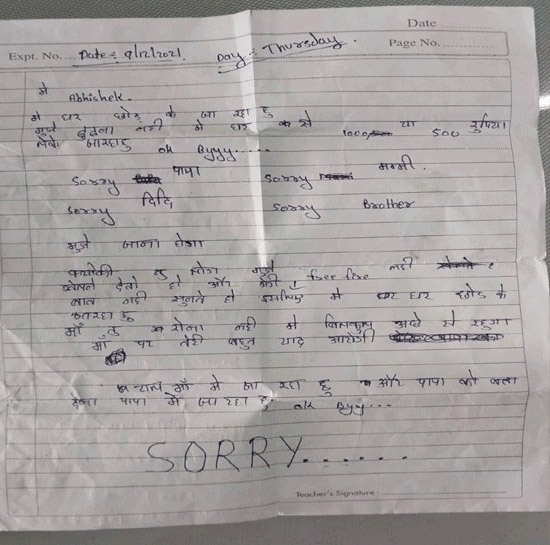 Date
Expt. No. Date : 9/12/2021 Day : Thursday. Page No.
मे Abhishek.
मे घर छोड़ के जा रहा हु
मुजे ढुढना नही मे घर से 1000 या 500 रुपिया
लेके जारहाहु ok Byyy.....
Sorry पापा Sorry मम्मी.
Sorry दिदि Sorry Brother
मुजे जाना होगा
क्योकी तु लोग मुजे free fire नही
खेलने देते हो और मेरी
बात नही सुनते हो इसलिए मे घर छोड के
जारहा हु
माँ तु रोना नही मे बिलकुल अच्छे से रहुगा
माँ पर तेरी बहुत याद आयेगी
चलो माँ मे जा रहा हु और पापा को बता
देना पापा मे जा रहा हु ok Byy...
SORRY......
Teacher's Signature :